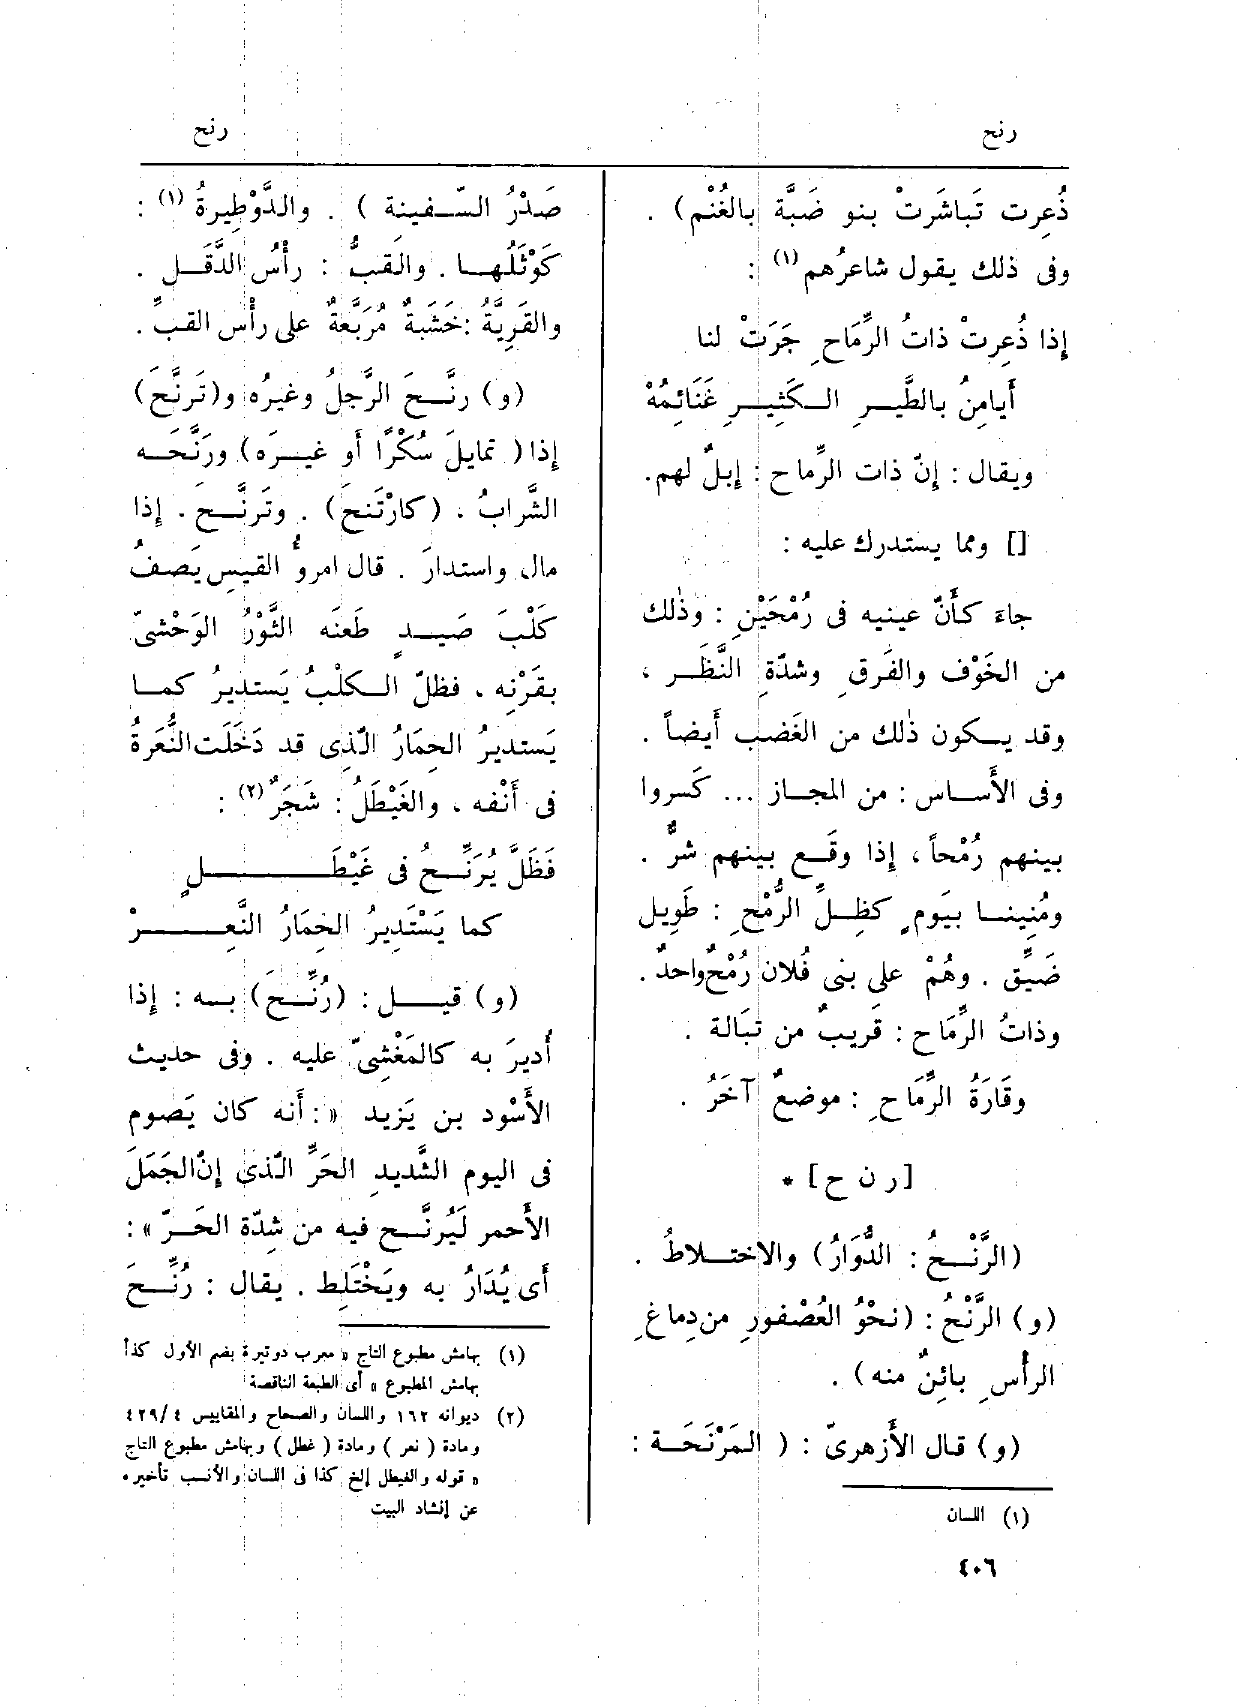 رنح
رنح
ذُعِرت تَباشَرتْ بنو ضَبَّة بالغُنْم) .
وفى ذلك يقول شاعرُهم (١) :
إذا ذُعِرتْ ذاتُ الرِّمَاحِ جَرَتْ لنا
أَيامِنُ بالطَّيـرِ الـكَثِيـرِ غَنَائِمُهْ
ويقال : إنّ ذات الرِّماح : إبلٌ لهم.
[] ومما يستدرك عليه :
جاءَ كأَنّ عينيه فى رُمْحَيْنِ : وذٰلك
من الخَوْف والفَرقِ وشدّةِ النَّظَـر ،
وقد يـكون ذٰلك من الغَضب أَيضاً .
وفى الأَسـاس : من المجـاز ... كَسروا
بينهم رُمْحاً ، إذا وقَـع بينهم شرٌّ .
ومُنِينـا بيَومٍ كظِـلِّ الرُّمْحِ : طَوِيل
ضَيِّق . وهُمْ على بنى فُلان رُمْحٌ واحدٌ .
وذاتُ الرِّمَاح : قَريبٌ من تَبَالة .
وقَارَةُ الرِّمَاحِ : موضعٌ آخَرُ .
[ر ن ح] *
(الرَّنْـحُ : الدُّوَارُ) والاختـلاطُ .
(و) الرَّنْحُ : (نحْوُ العُصْفورِ من دِماغِ
الرأْسِ بائِنٌ منه) .
(و) قال الأَزهرىّ : ( المَرْنَحَـة :
(١) اللسان
٤٠٦
صَدْرُ السّـفينة ) . والدَّوْطِيرةُ (١) :
كَوْثَلُهـا . والقَبُّ : رأْسُ الدَّقَـل .
والقَرِيَّةُ : خَشَبَةٌ مُرَبَّعةٌ على رأْس القَبِّ .
(و) رنَّـحَ الرَّجلُ وغيرُه و(تَرنَّحَ)
إذا ( تمايلَ سُكْرًا أو غيـرَه) ورَنَّحَـه
الشَّرابُ ، (كارْتَنح) . وتَرنَّـح . إذا
مال واستدارَ . قال امرؤُ القَيسِ يَصفُ
كَلْبَ صَيـدٍ طَعنَه الثَّوْرُ الوَحْشىّ
بقَرْنِه ، فظلّ الـكلْبُ يَستديرُ كمـا
يَستديرُ الحِمَارُ الّذِى قد دَخَلَت النُّعَرةُ
فى أَنْفه ، والغَيْطَلُ : شَجَرٌ (٢) :
فَظَلَّ يُرَنِّـحُ فى غَيْطَـــــلٍ
كما يَسْتَدِيرُ الحِمَارُ النَّعِـــرْ
(و) قيـل : (رُنِّـحَ) بـه : إذا
أُديرَ به كالمَغْشِىّ عليه . وفى حديث
الأَسْود بن يَزيد « : أَنه كان يَصوم
فى اليوم الشَّديدِ الحَرِّ الّذى إنّ الجَمَلَ
الأَحمر لَيُرنَّـح فيه من شِدّة الحَـرّ » :
أَى يُدَارُ به ويَخْتَلِط . يقال : رُنِّـحَ
(١) بهامش مطبوع التاج « معرب دوتيرة بضم الأول كذا
بهامش المطبوع » أى الطبعة الناقصة
(٢) ديوانه ١٦٢ واللسان والصحاح والمقاييس ٤/ ٤٢٩
ومادة ( نعر ) ومادة ( غطل ) وبهامش مطبوع التاج
« قوله والغيطل إلخ كذا فى اللسان والأنسب تأخيره
عن إنشاد البيت